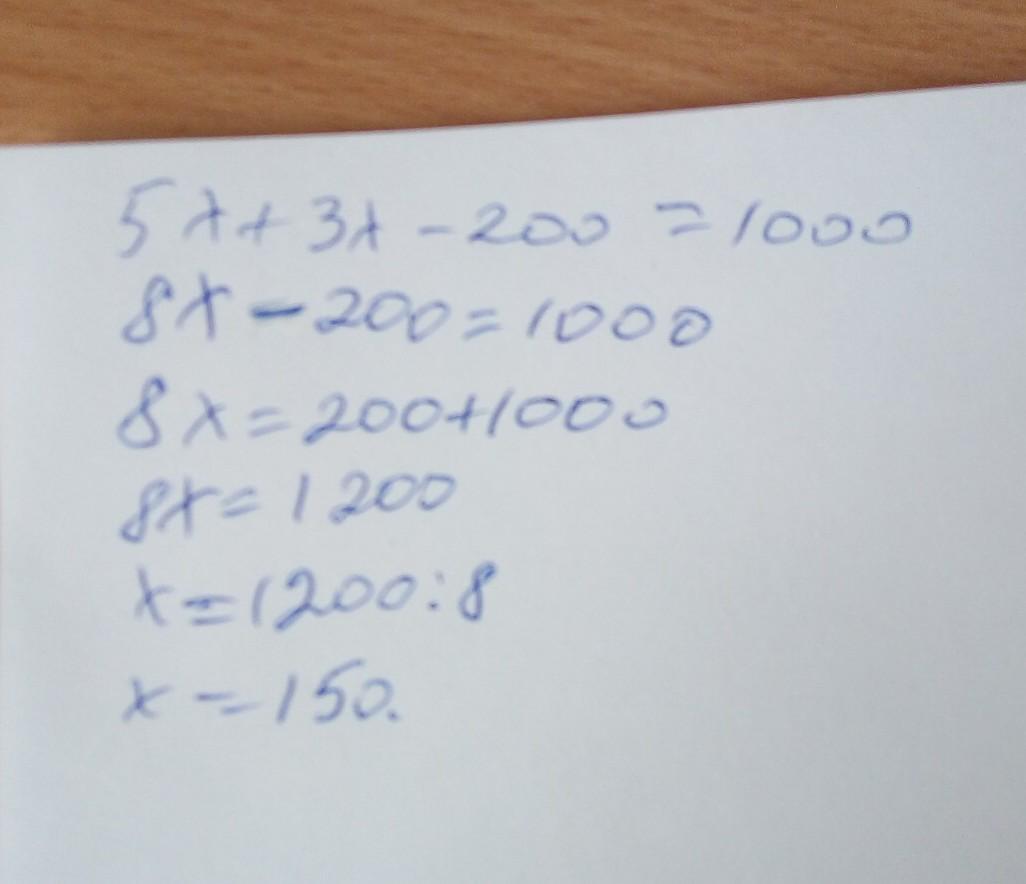 5x+3x-200=1000
8x-200=1000
8x=200+1000
8x=1200
x=1200:8
x=150.